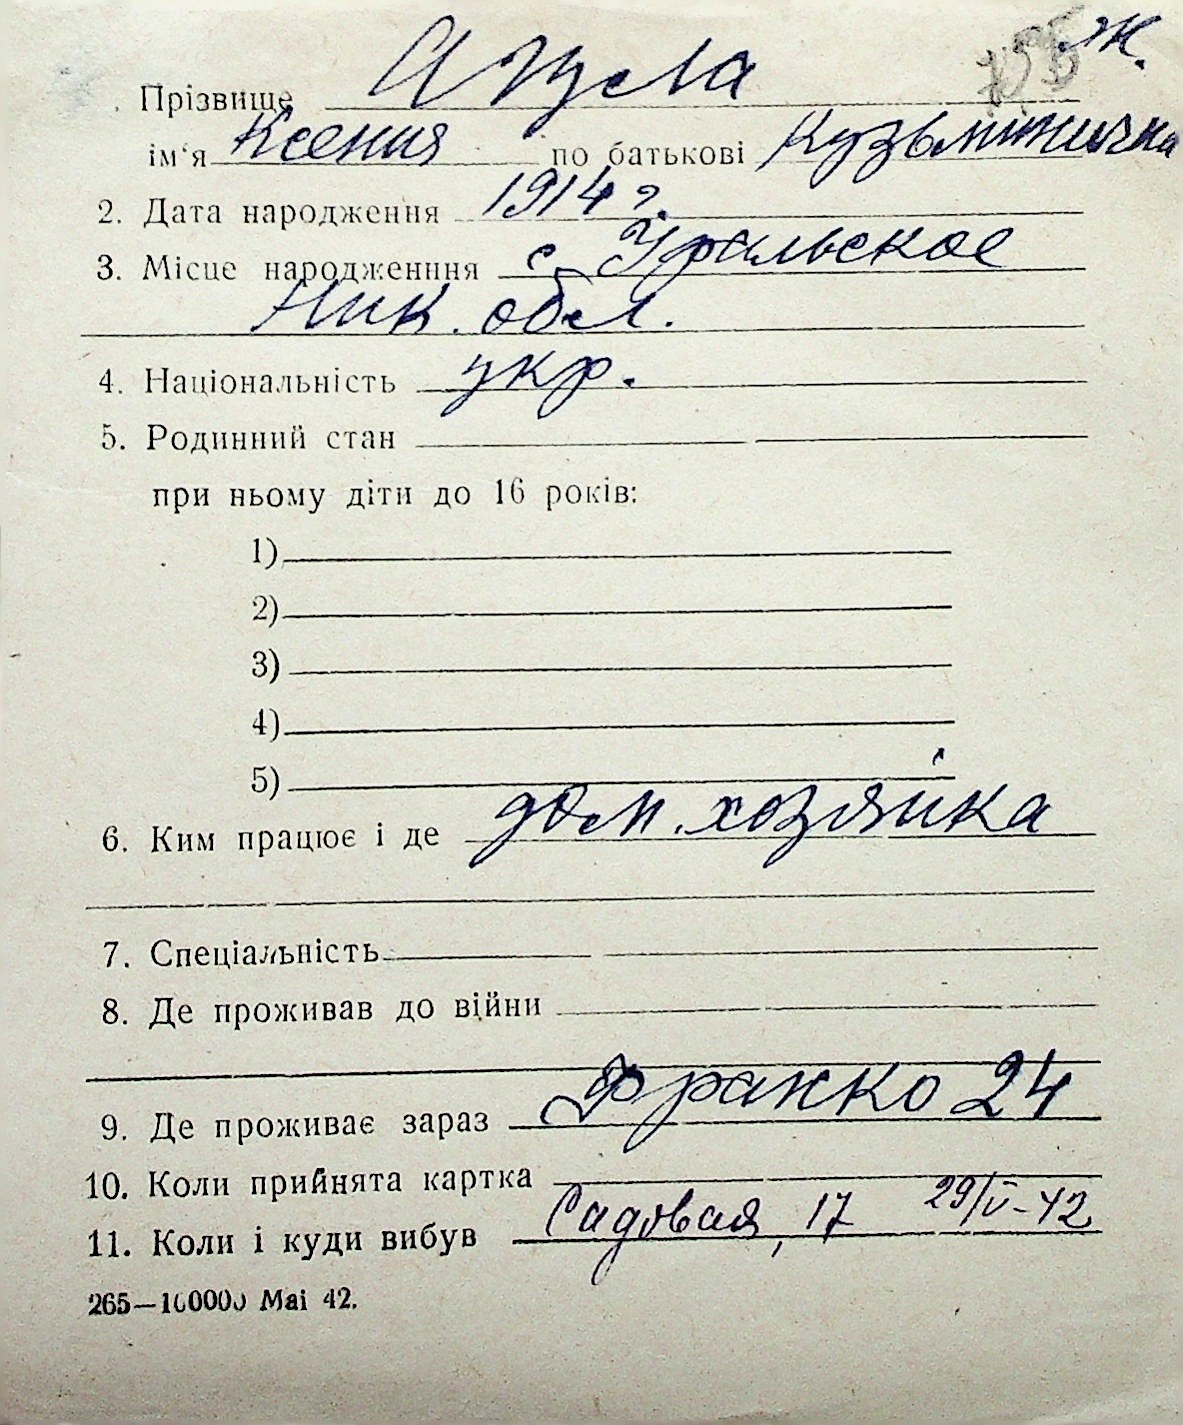 ж.
Прізвище Яцела
ім'я Ксения по батькові Кузьминична
2. Дата народження 1914 г.
3. Місце народженння с. Уральское
Ник. обл.
4. Національність укр.
5. Родинний стан
при ньому діти до 16 років:
1)
2)
3)
4)
5)
6. Ким працює і де дом. хозяйка
7. Спеціальність
8. Де проживав до війни
9. Де проживає зараз Франко 24
10. Коли прийнята картка
11. Коли і куди вибув Садовая, 17 29/V-42
265—100000 Mai 42.